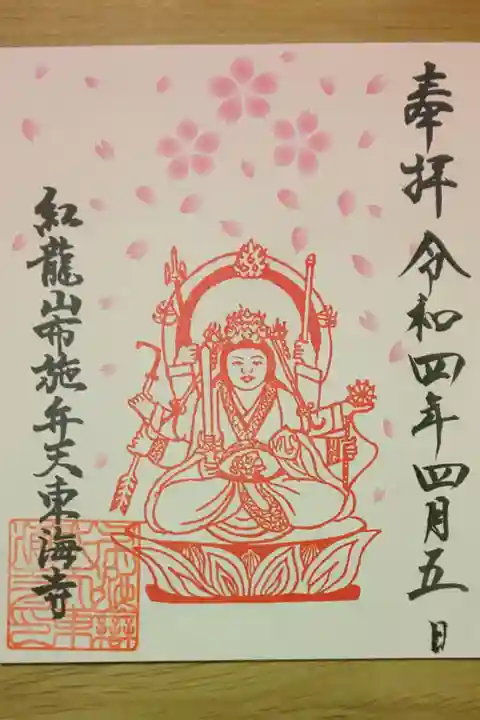 奉拝 令和四年四月五日
紅龍山布施弁天東海寺